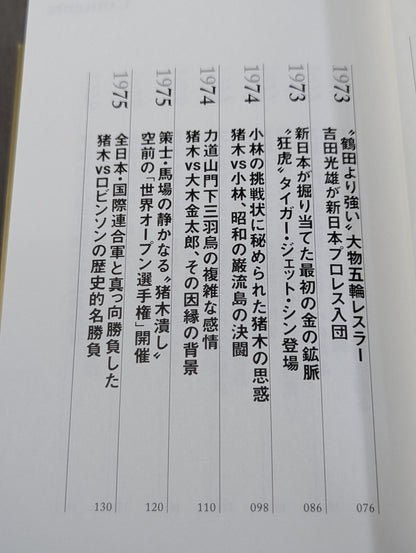 1973
〝鶴田より強い〟大物五輪レスラー
吉田光雄が新日本プロレス入団
076
1973
新日本が掘り当てた最初の金の鉱脈
〝狂虎〟タイガー・ジェット・シン登場
086
1974
小林の挑戦状に秘められた猪木の思惑
猪木vs小林、昭和の巌流島の決闘
098
1974
力道山門下三羽烏の複雑な感情
猪木vs大木金太郎、その因縁の背景
110
1975
策士・馬場の静かなる〝猪木潰し〟
空前の「世界オープン選手権」開催
120
1975
全日本・国際連合軍と真っ向勝負した
猪木vsロビンソンの歴史的名勝負
130